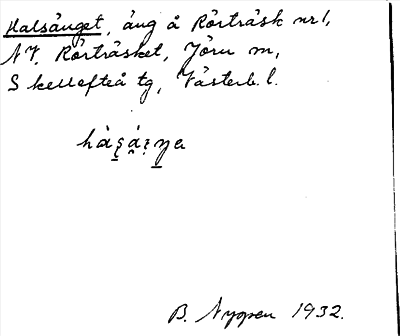 Halsänget, äng å Rörträsk nr 1,
N V. Rörträsket, Jörn sn,
Skellefteå tg, Västerb. l.
B. Nyppen 1932.